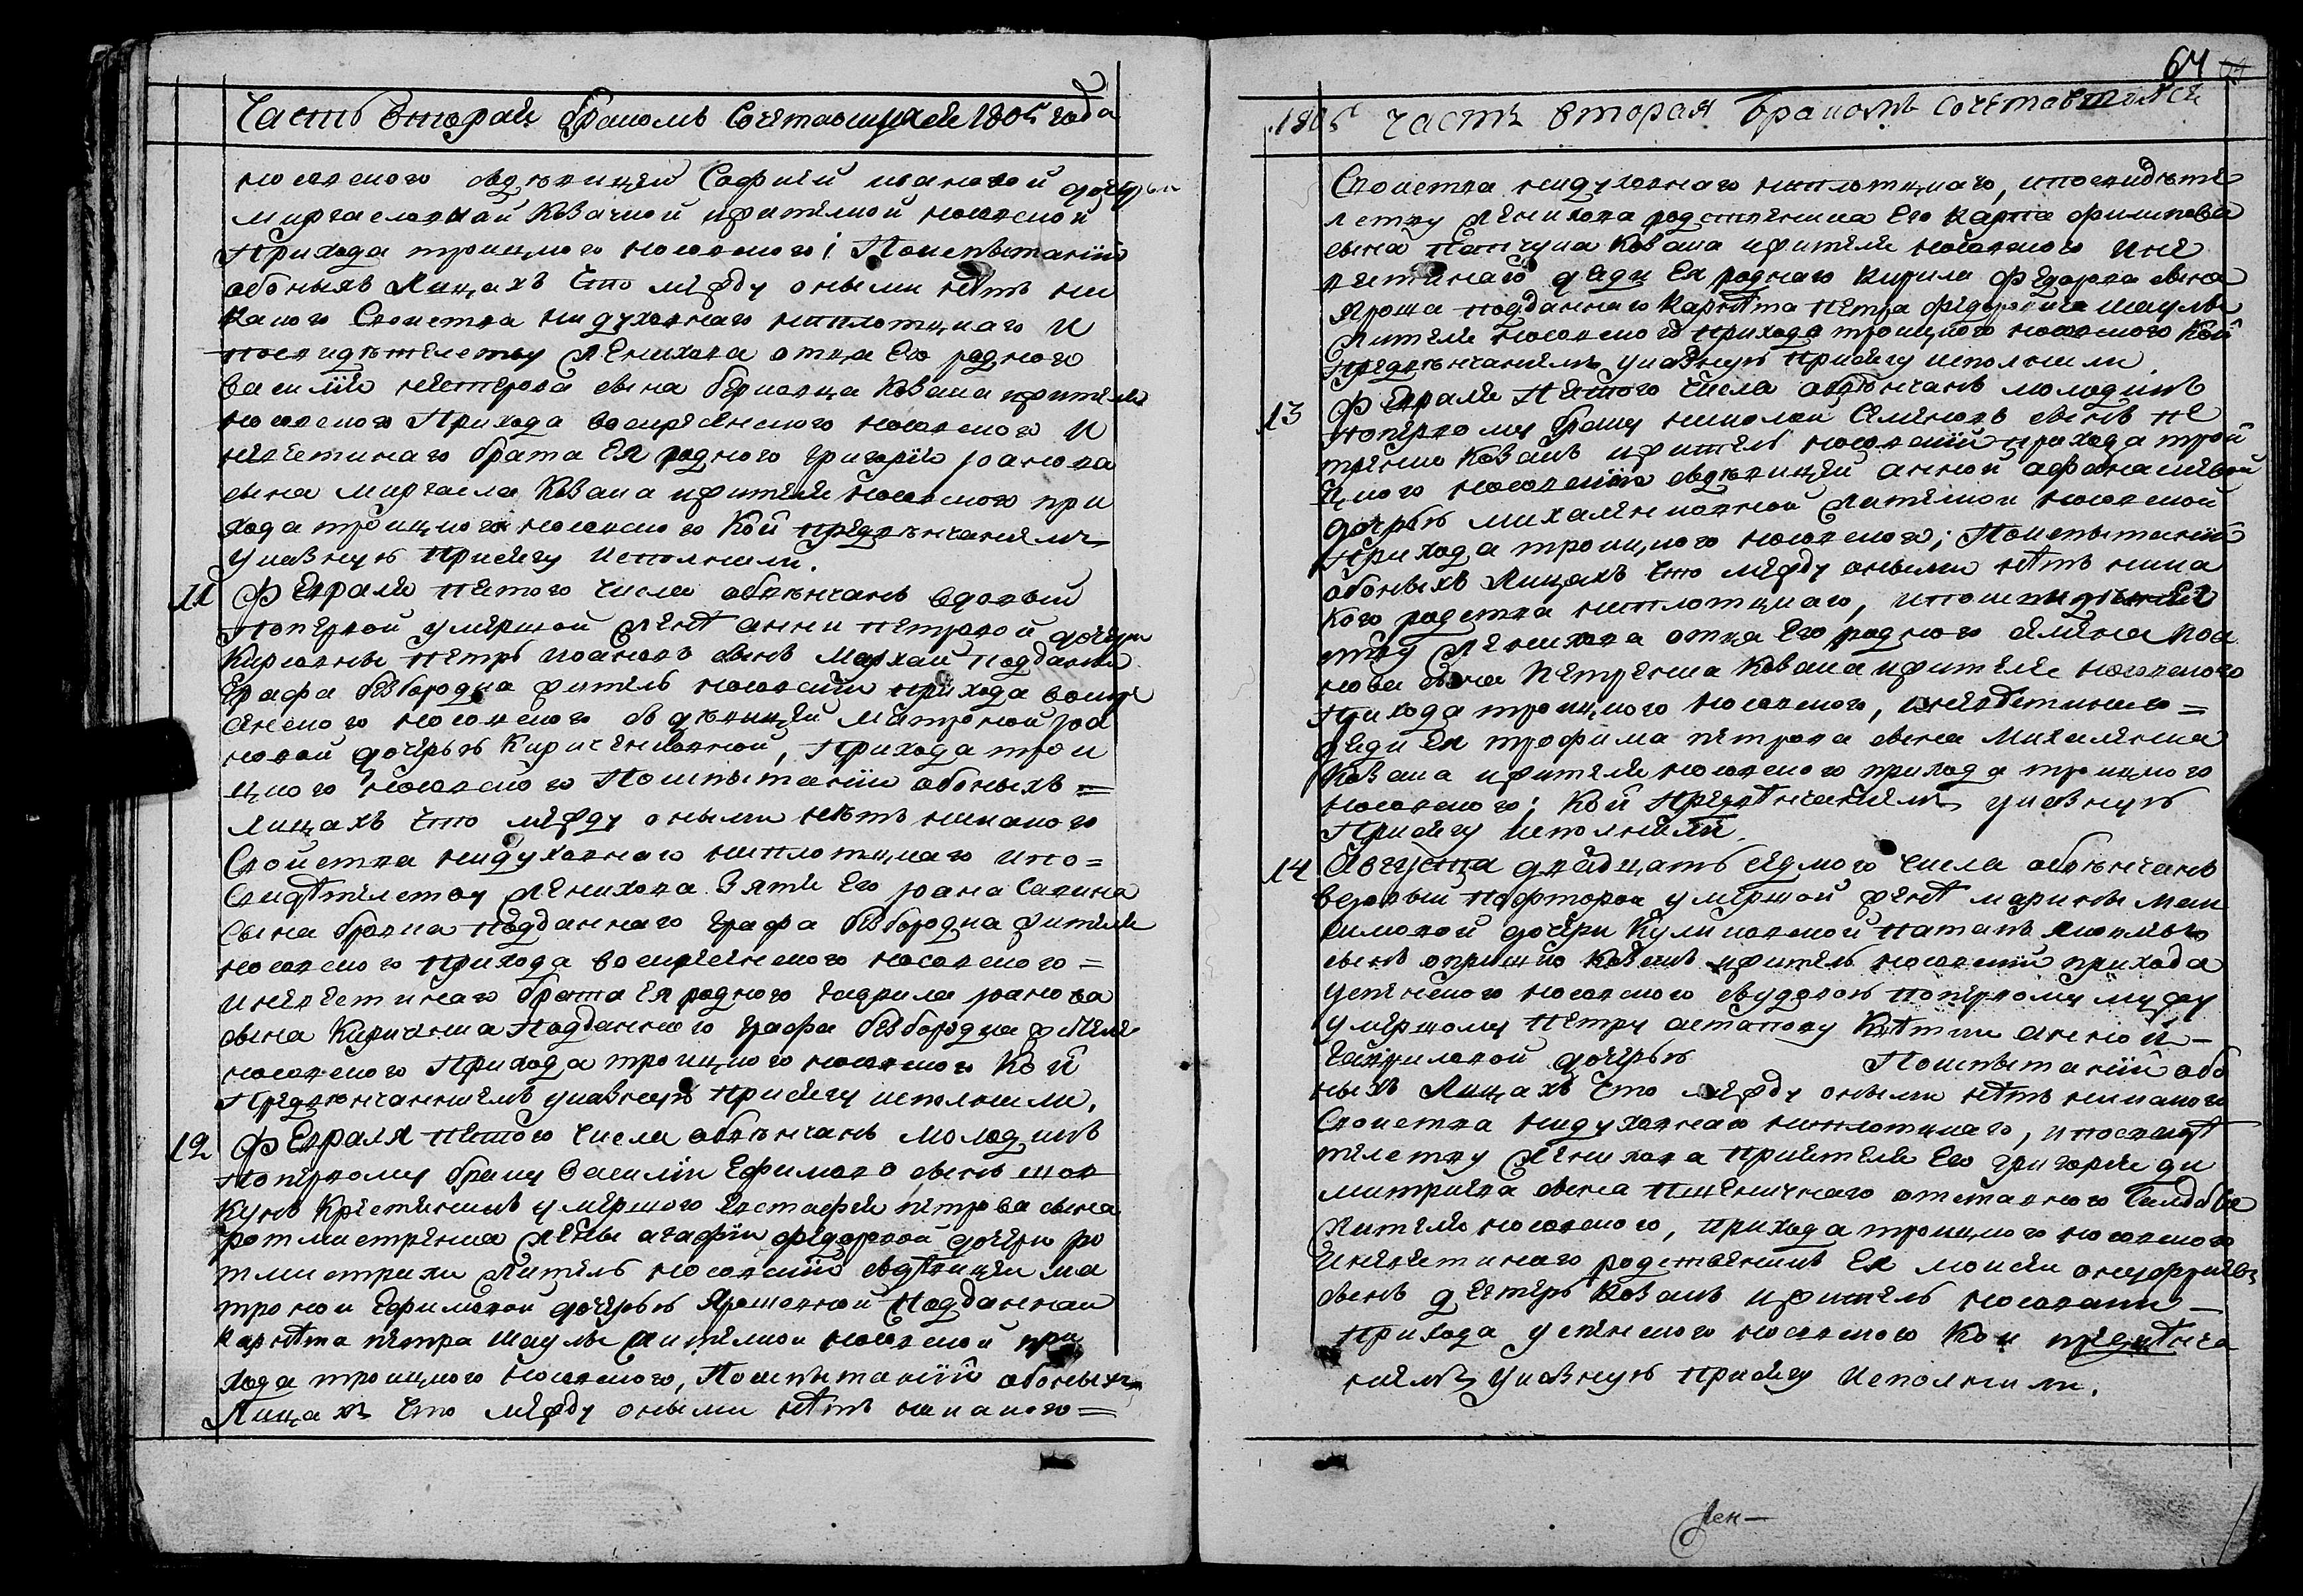 Часть вторая бракомъ Сочетавшихся 1805 года
носовского съ дѣвицей Софией ивановой дочерью
миргасловной Козачкой жителкой носовской
Прихода троицкого носовского; По испытанїи
обоныхъ Лицахъ Что между оными нѣтъ ни
какого Своиства ни духовнаго ни плотцкаго И
по свидѣтелству Женихова отца Его родного
василїя нестерова сына Козака жителя
носовского Прихода воскресенского носовского И
невестинаго брата Ея родного григорїя Іоанова
сына миргасла Козака жителя носовского при
хода троицкого носовского Кой предвѣнчаниемъ
указную Присягу исполнили.
11 Февраля пятого числа обвѣнчанъ вдовый
по первой умершой Женѣ анни петровой дочери
петръ иоановъ сынъ подданый
Графа безбородка житель носовский прихода воскре
сенского носовского съ дѣвицей матроной Іоа
новой дочерью Кириченковной, Прихода трои
цкого носовского По испытанїи обоныхъ =
лицахъ Что между оными нѣтъ никакого
Своиства ни духовнаго ни плотцкаго и по =
Свидѣтелству Женихова Зятя Его Іоана Савина
Сына бровка подданнаго графа безбородка жителя
носовского прихода воскресенского носовского =
и невестинаго брата Ея родного гаврила Іоанова
сына Кириченка Подданнаго графа безбородка жителя
носовского Прихода троицкого носовского Кой
Предвѣнчаниемъ указную присягу исполнили.
12 Февраля пятого числа обвѣнчанъ молодикъ
по первому браку василїи Ефимовъ сынъ шов
кунъ Крестникъ умершого Евстафия петрова сына
ротмистренка Жены агафїи федоровой дочери ро
тмистрихи Житель носовский съ дѣвицей ма
троной Ефимовой дочерью Ярошовной Подданной
карнѣта петра шаулы жителкой носовской при
хода троицкого носовского, По испытанїи обоныхъ
Лицахъ Что между оными нѣтъ никакого =
64
1805 Часть вторая бракомъ сочетавшихся
Своиства ни духовнаго ни плотцкаго, и по свидѣте
лству Женихова родственика Его Карпа филипова
сына Козака жителя носовского и не
вестинаго дяди Ея роднаго кирила Федорова сына
Яроша подданнаго Карнѣта петра федоровича шаулы
Жителя носовского прихода троицкого носовского Кой
предвѣнчаниемъ указную присягу исполнили.
13 Февраля пятого числа обвѣнчанъ молодикъ
по первому браку николай Семеновъ сынъ пе
тренко Козакъ житель носовский прихода трои
цкого носовского съ дѣвицей анной афанасиевой
дочерью михаленковной Жителкой носовской
Прихода троицкого носовского; По испытанїи
обоныхъ Лицахъ Что между оными нѣтъ ника
кого родства ни плотцкаго, и по свидѣтел
ству Женихова отца Его родного семена Иоа
нова сына Петренка Козака жителя носовского
прихода троицкого носовского, и невестинаго =
дяди Ея трофима петрова сына Михаленка
Козака жителя носовского прихода троицкого
носовского; Кой Предвѣнчаниемъ указную
Присягу исполнили.
14 Августа двадцать седмого числа обвѣнчанъ
вдовый по второй умершой женѣ марины мак
симовой дочери Куликовской
сынъ Козакъ житель носовский прихода
успенского носовского съ вудовою по первому мужу
умершому петру остапову анной -
гавриловой дочерью По испытанїи обо
ныхъ Лицахъ Что между оными нѣтъ никакого
Своиства ни духовнаго ни плотцкаго, и по свидѣ
телству Женихова Приятеля Его григория ди
митриева сына пшеничнаго отставного Салдата
Жителя носовского, прихода троицкого носовского
и невестинаго родственикъ Ея моисей онуфриевъ
сынъ дегтеръ Козакъ житель носовский -
прихода успенского носовского Кои предвѣнча
ниемъ указную присягу исполнили.